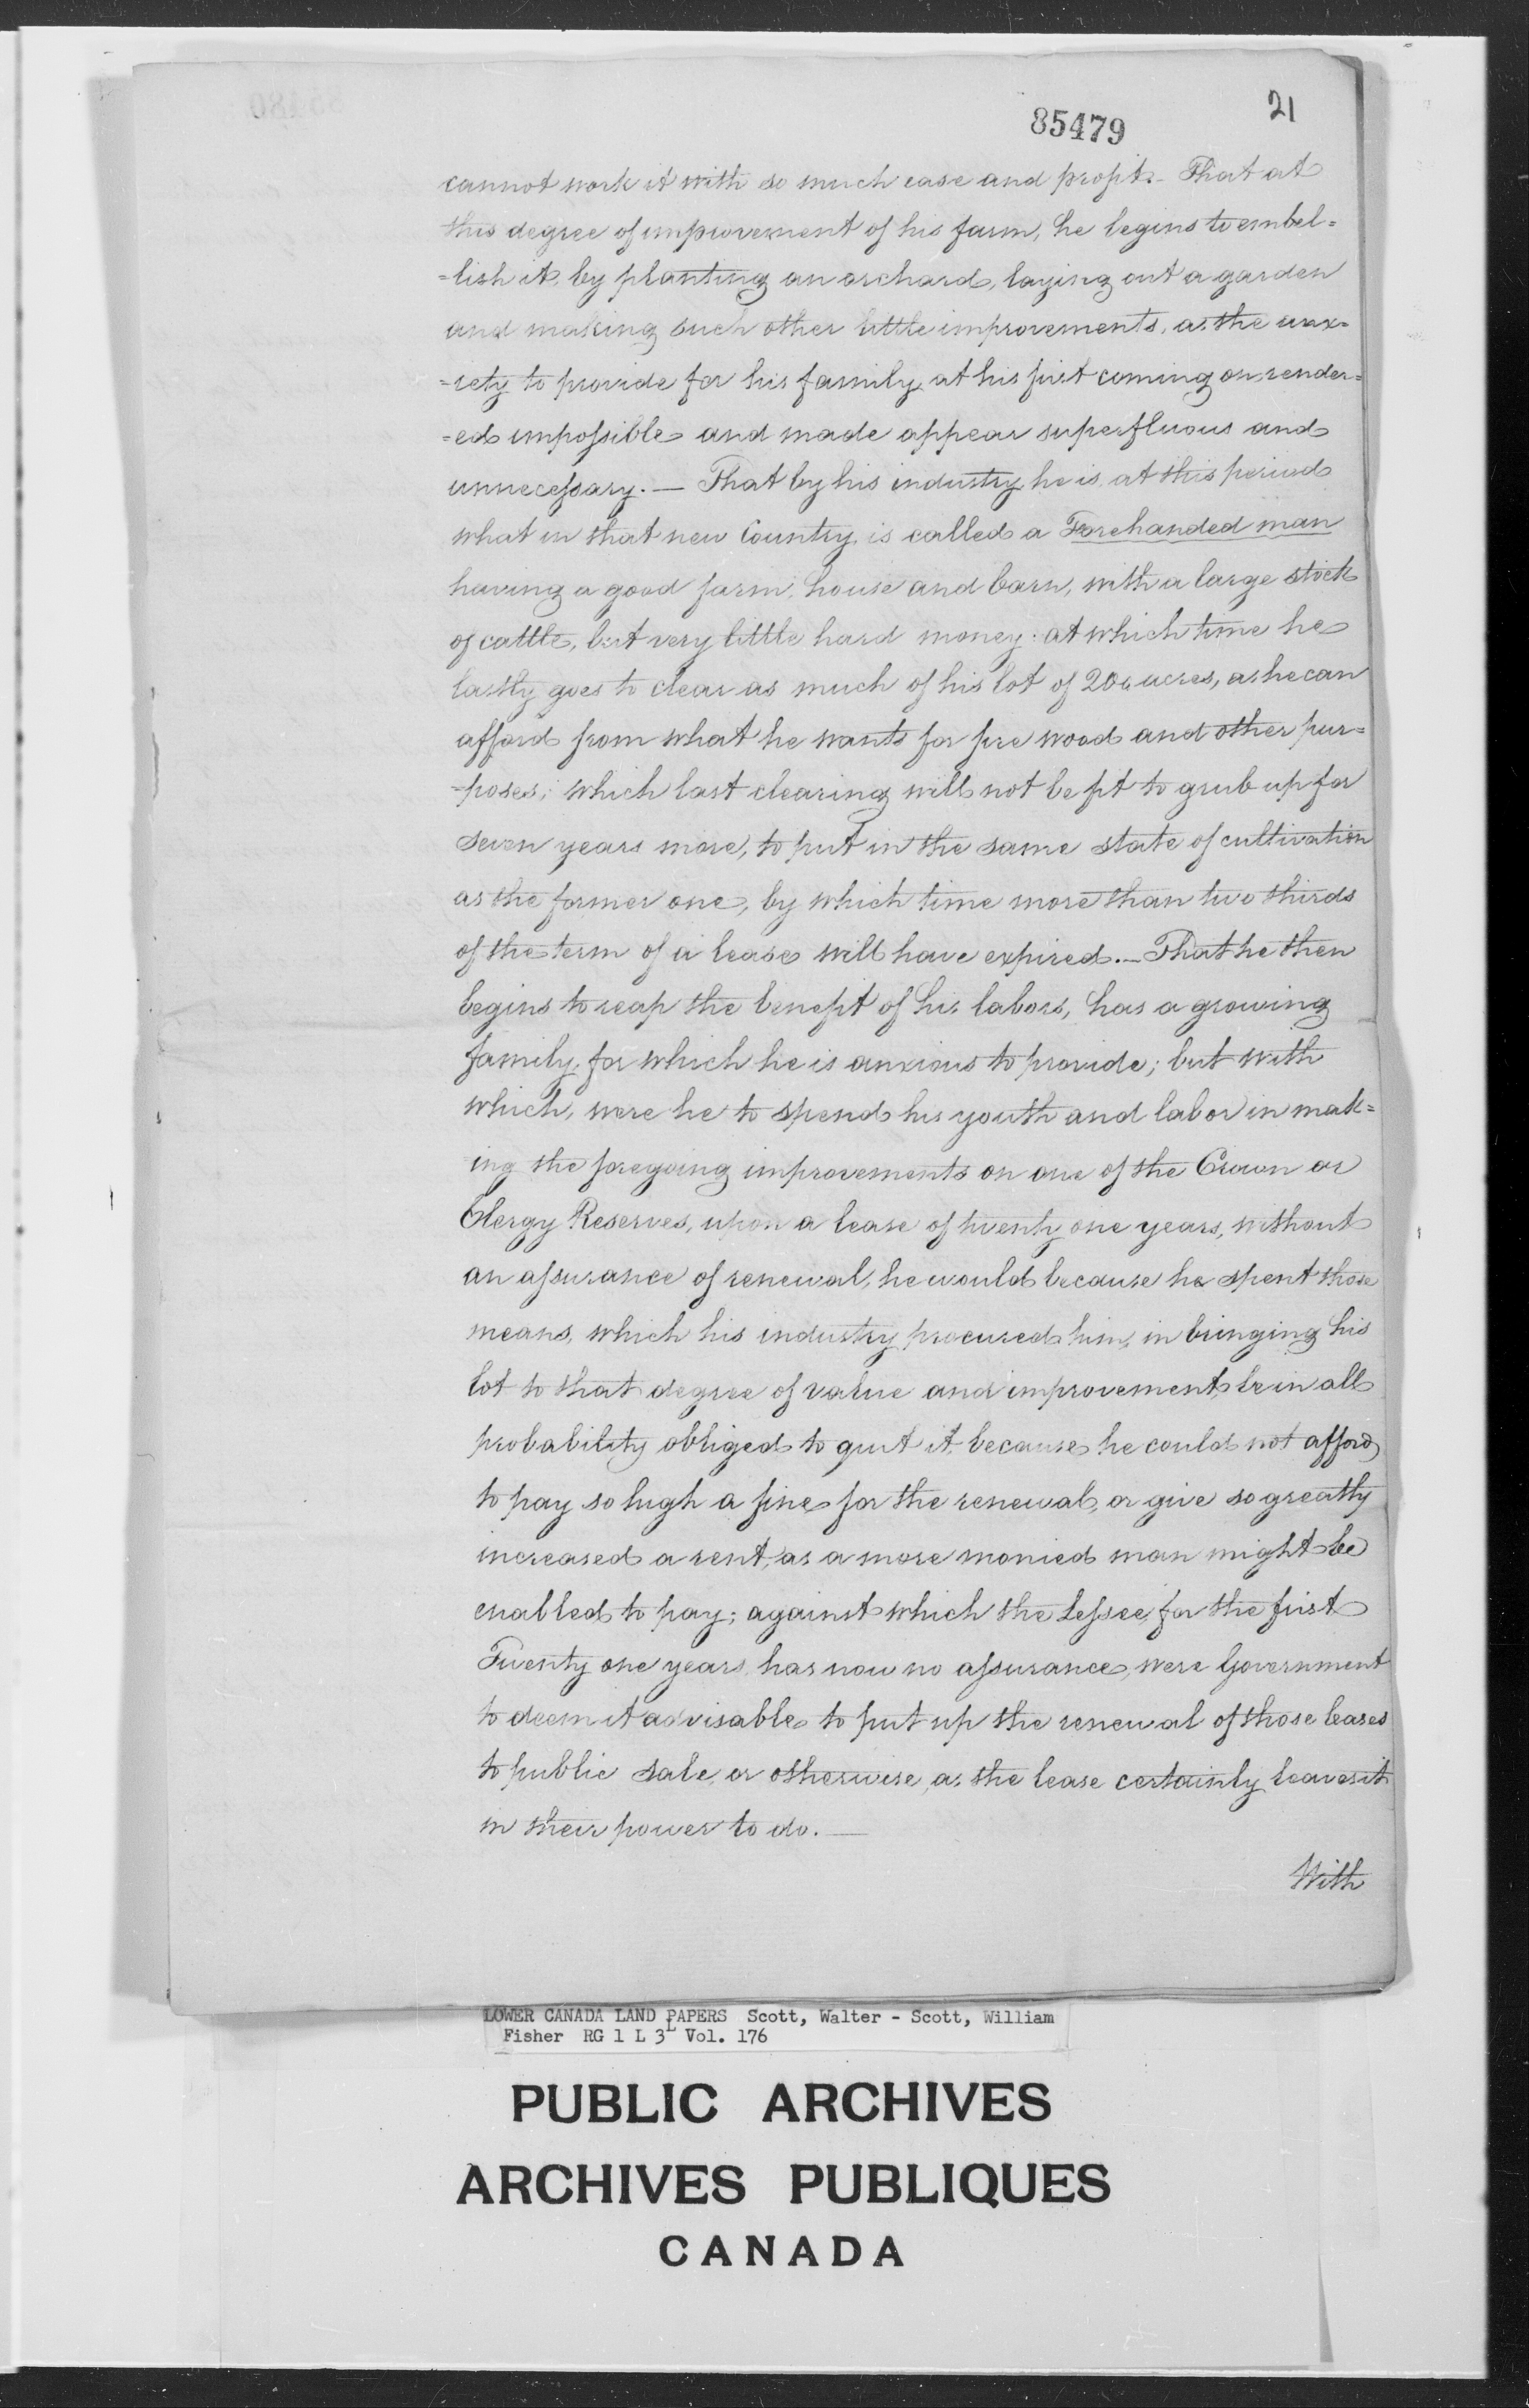 85479
21
cannot work it with so much ease and profit. - That at
this degree of improvement of his farm, he begins to embel=
=lish it, by planting an orchard, laying out a garden
and making such other little improvements, as the anx=
=iety to provide for his family at his first coming on, render=
=ed impoſsible and made appear superfluous and
unneceſsary. — That by his industry he is at this period
what in that new Country, is called a Forehanded man
having a good farm, house and barn, with a large stock
of cattle, but very little hard money: at which time he
lastly goes to clear as much of his lot of 200 acres, as he can
afford from what he wants for fire wood and other pur=
=poses; which last clearing will not be fit to grub up for
seven years more, to put in the same state of cultivation
as the former one, by which time more than two thirds
of the term of a lease will have expired. - That he then
begins to reap the benefit of his labors, has a growing
family, for which he is anxious to provide; but with
which, were he to spend his youth and labor in mak=
ing the foregoing improvements on one of the Crown or
Clergy Reserves, upon a lease of twenty one years, without
an aſsurance of renewal, he would because he spent those
means, which his industry procured him, in bringing his
lot to that degree of value and improvement, be in all
probability obliged to quit it, because he could not afford
to pay so high a fine for the renewal, or give so greatly
increased a rent, as a more monied man might be
enabled to pay; against which the Leſsee, for the first
Twenty one years, has now no aſsurance, were Government
to deem it advisable to put up the renewal of those leases
to public sale, or otherwise, as the lease certainly leaves it
in their power to do. —
With
LOWER CANADA LAND PAPERS Scott, Walter - Scott, William
Fisher RG 1 L 3L Vol. 176
PUBLIC ARCHIVES
ARCHIVES PUBLIQUES
CANADA